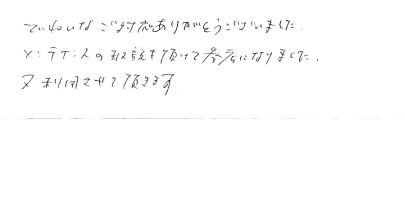 ていねいなご対応ありがとうございました。
メンテナンスの説明を頂けて参考になりました。
又利用させて頂きます